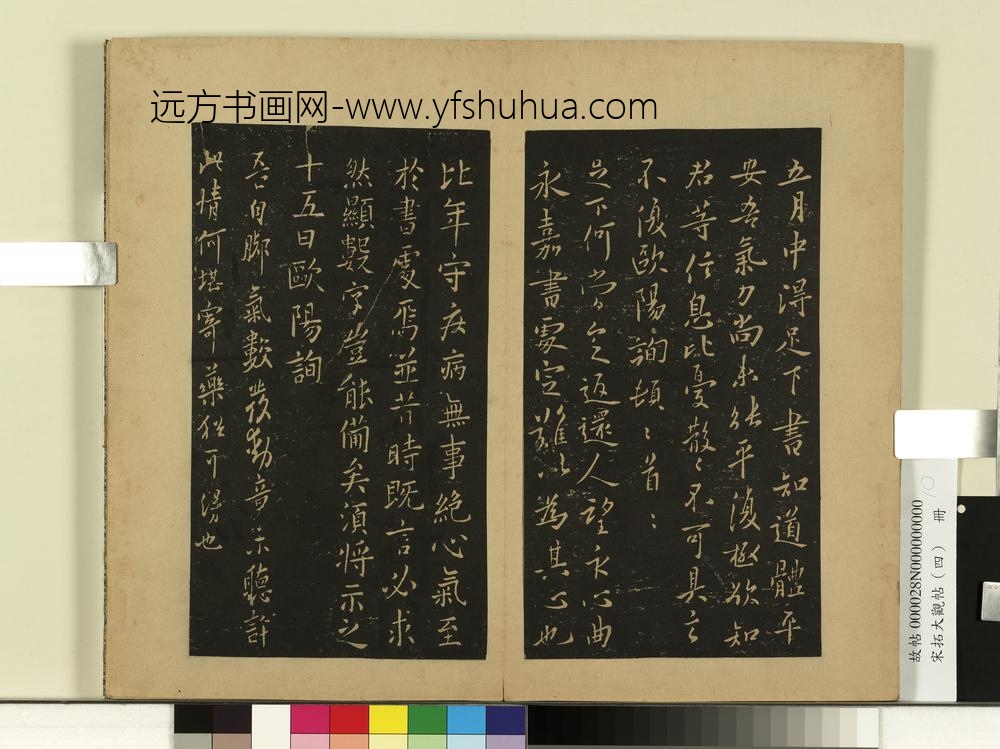 远方书画网-www.yfshuhua.com
五月中得足下書知道體平
安吾氣力尚未能平復極欲知
君等信息比憂散〻不可具言
不復歐陽詢頓〻首〻
足下何當返還人望永心曲
永嘉書處定難以為其心也
比年守疾病無事絕心氣至
於書處焉並昔時既言必求
然顯數字豈能備矣須將示之
十五日歐陽詢
吾自腳氣數發動竟未聽許
此情何堪寄藥猶可得也
故帖000028N000000000
宋拓大觀帖(四) 冊
10